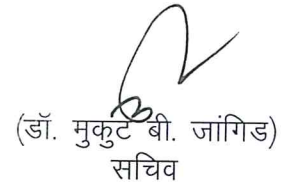 (डॉ. मुकुट बी. जांगिड)
सचिव